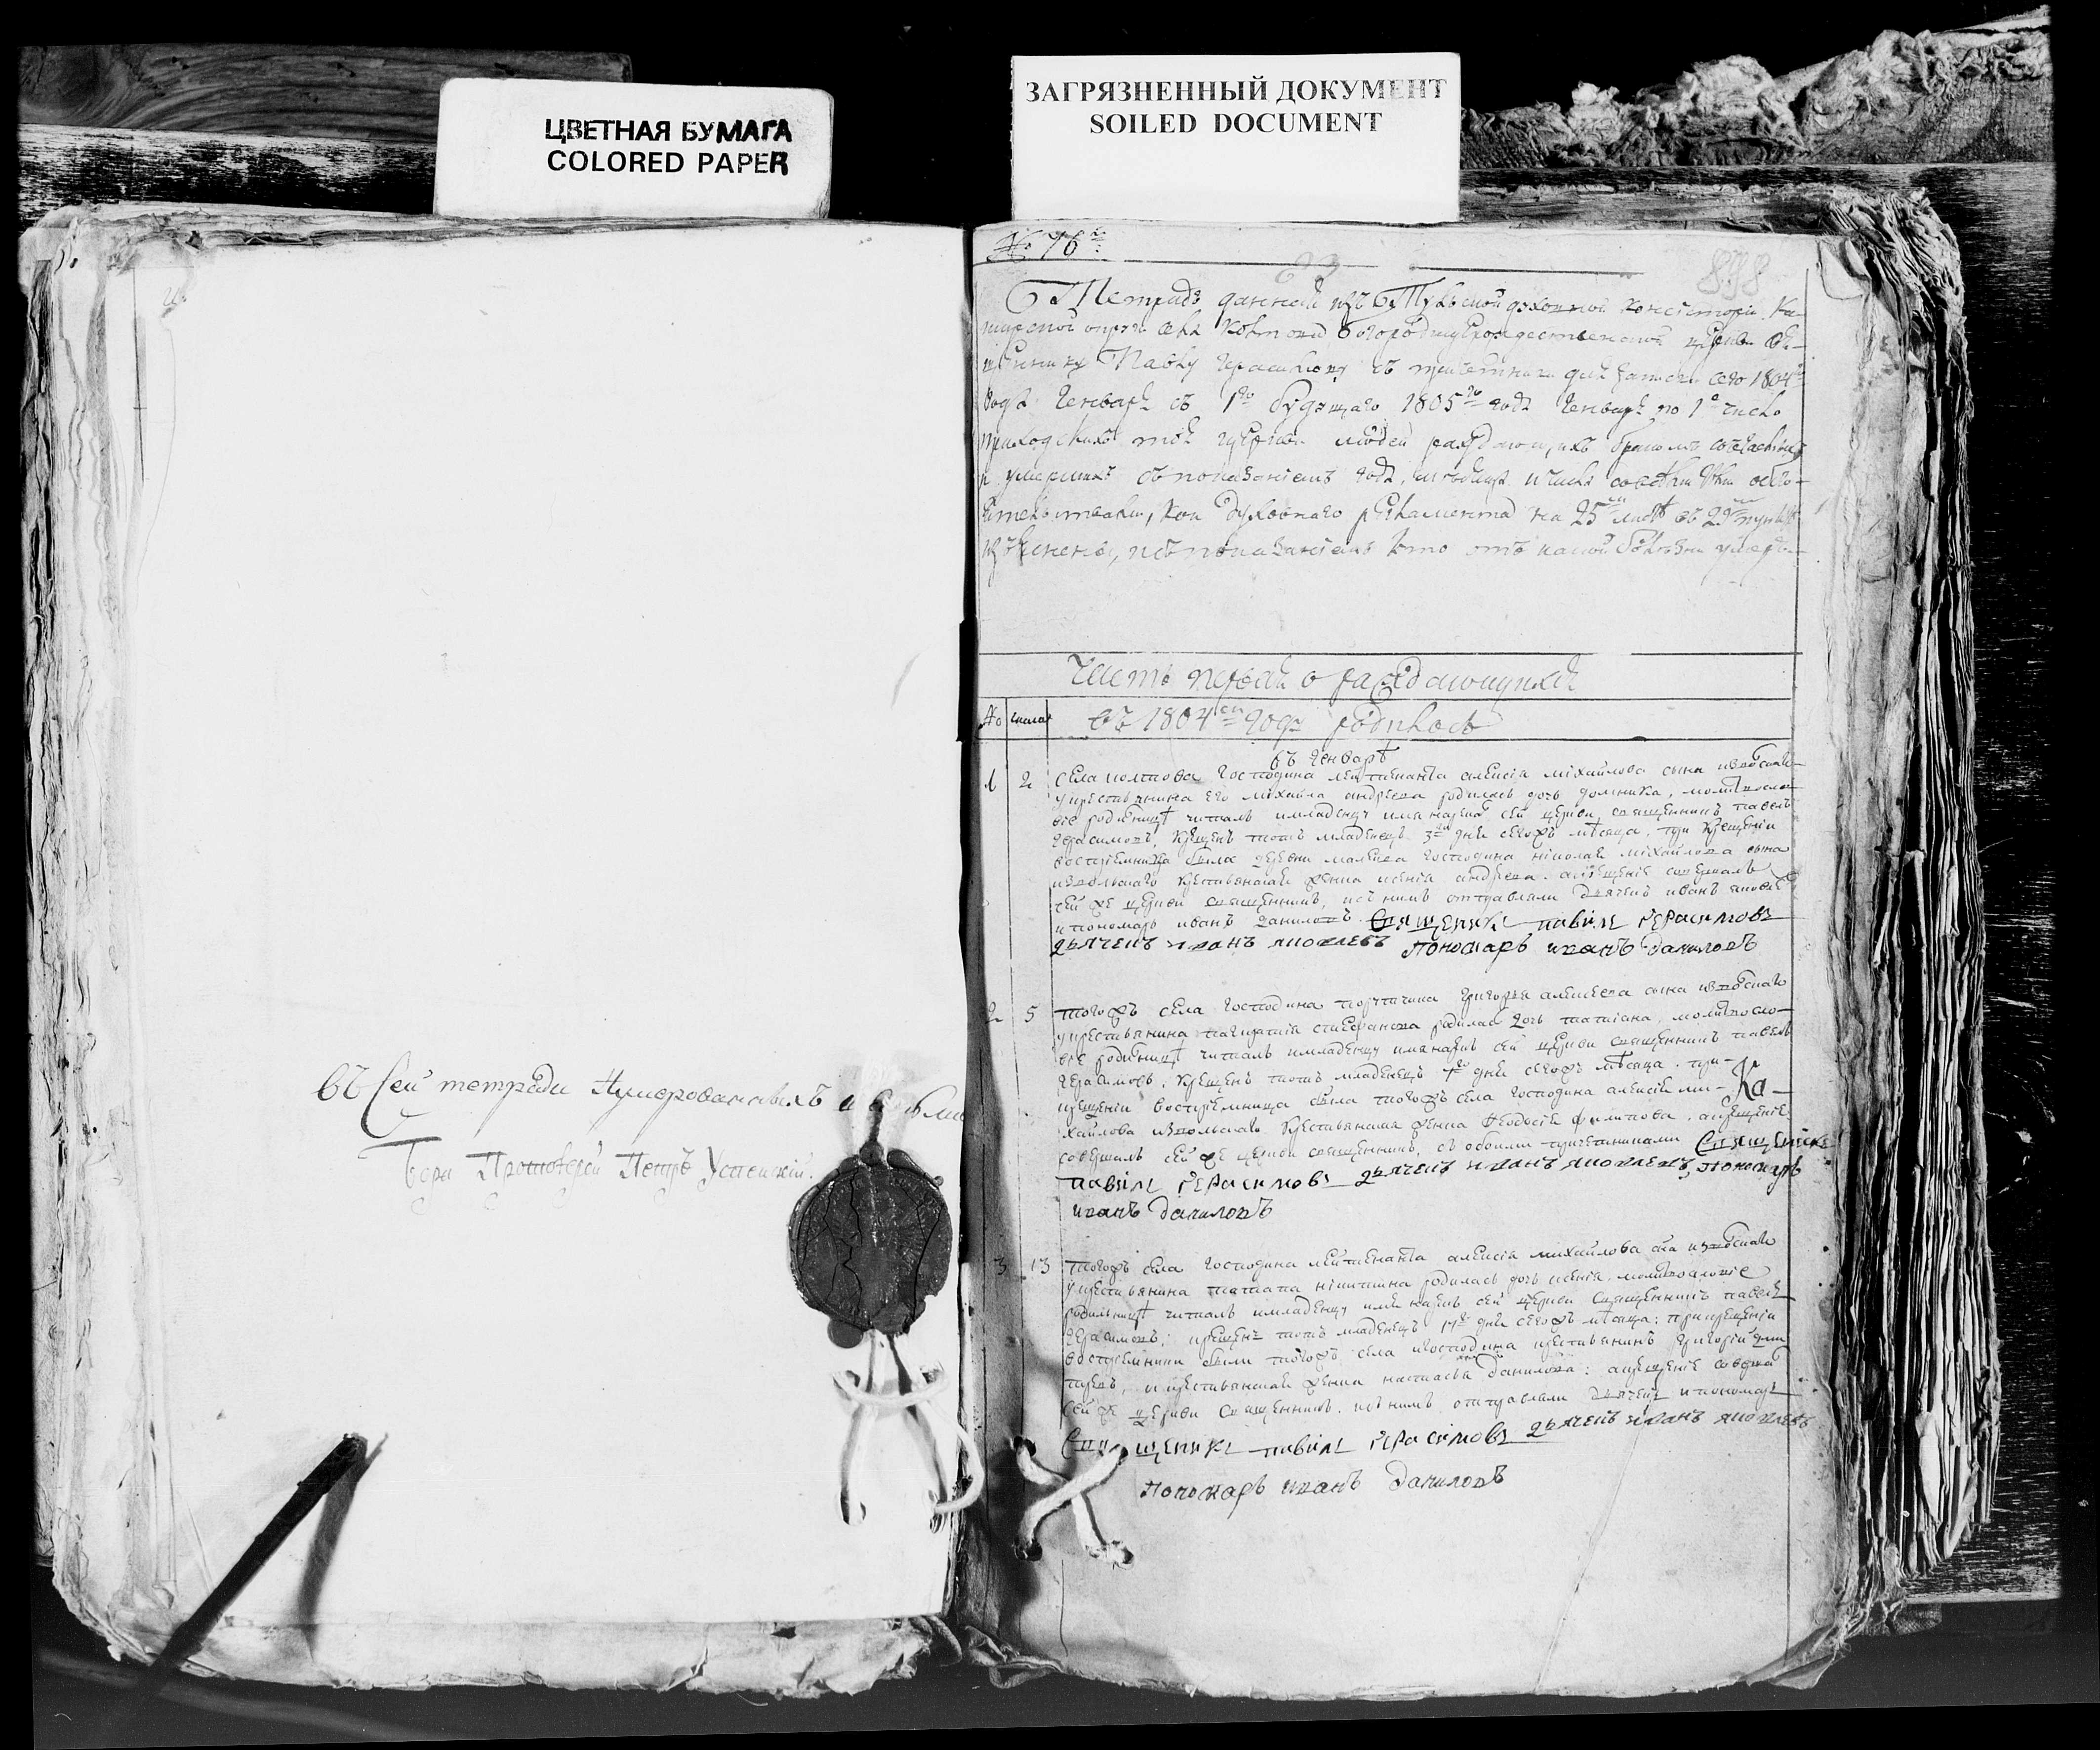 ЦВЕТНАЯ БУМАГА
COLORED PAPER
ЗАГРЯЗНЕННЫЙ ДОКУМЕНТ
SOILED DOCUMENT
въ Сей тетради Нумерованныхъ
Протоіерей Петръ Успенскій.
№ 76
898
Тетрадь данная изъ Тульской духовной консисторіи Ка-
ширской округи села Богородицерождественской церкви Свя-
щеннику Павлу Герасимову съ причетники для записки сего 1804го
года Генваря съ 1го будущаго 1805го года Генваря по 1е число
приходскихъ той церкви людей раждающихся бракомъ сочетавшихся
и умершихъ съ показаніемъ года, месяца и числа со всѣми обсто-
ятельствами, кои духовнаго регламента на 25м листѣ въ 29м пунктѣ
изъяснены, и съ показаніемъ кто отъ какой болезни умеръ
Часть первая о раждающихся
№ числа въ 1804м году родилось
въ генварѣ
1 2 села господина лейтенанта алексія міхайлова сына
у крестьянина его міхаила андреева родилась дочь домника, молитвосло-
віе родильницѣ читалъ и младенцу имя нареклъ сей церкви священникъ павелъ
герасимовъ, крещенъ тотъ младенецъ 3го дня сегожъ мѣсяца, при крещеніи
воспріемница была деревни господина ніколая міхайлова сына
крестьянская жена ксенія андреева. а крещеніе совершалъ
сей же церкви священникъ, и съ нимъ отправляли дьячекъ иванъ яковлевъ
и пономарь иванъ даниловъ. Священникъ павелъ герасимовъ
дьячекъ иванъ яковлевъ пономарь иванъ даниловъ
2 5 тогожъ села господина григорья алексеева сына
у крестьянина стефанова родилась дочь татиана, молитвосло-
віе родильницѣ читалъ и младенцу имя нареклъ сей церкви священникъ павелъ
герасимовъ, крещенъ тотъ младенецъ 7го дня сегожъ мѣсяца. при
крещеніи воспріемница была тогожъ села господина алексія ми-
хайлова крестьянская жена ѳеодосія филипова, а крещеніе
совершалъ сей же церкви священникъ, съ обоими причетниками Священникъ
павелъ герасимовъ дьячекъ иванъ яковлевъ, пономарь
иванъ даниловъ
3 13 тогожъ села господина лейтенанта алексія михайлова сна
у крестьянина никитина родилась дочь ксенія, молитвословіе
родильницѣ читалъ и младенцу имя нареклъ сей церкви священникъ павелъ
герасимовъ: крещенъ тотъ младенецъ 17го дня сегожъ мѣсяца: при крещеніи
воспріемники были тогожъ села и господина крестьянинъ григорій
и крестьянская жена настасья данилова: а крещеніе совершалъ
сей же церкви священникъ. и съ нимъ отправляли дьячекъ и пономарь
Священникъ павелъ герасимовъ дьячекъ иванъ яковлевъ
пономарь иванъ даниловъ